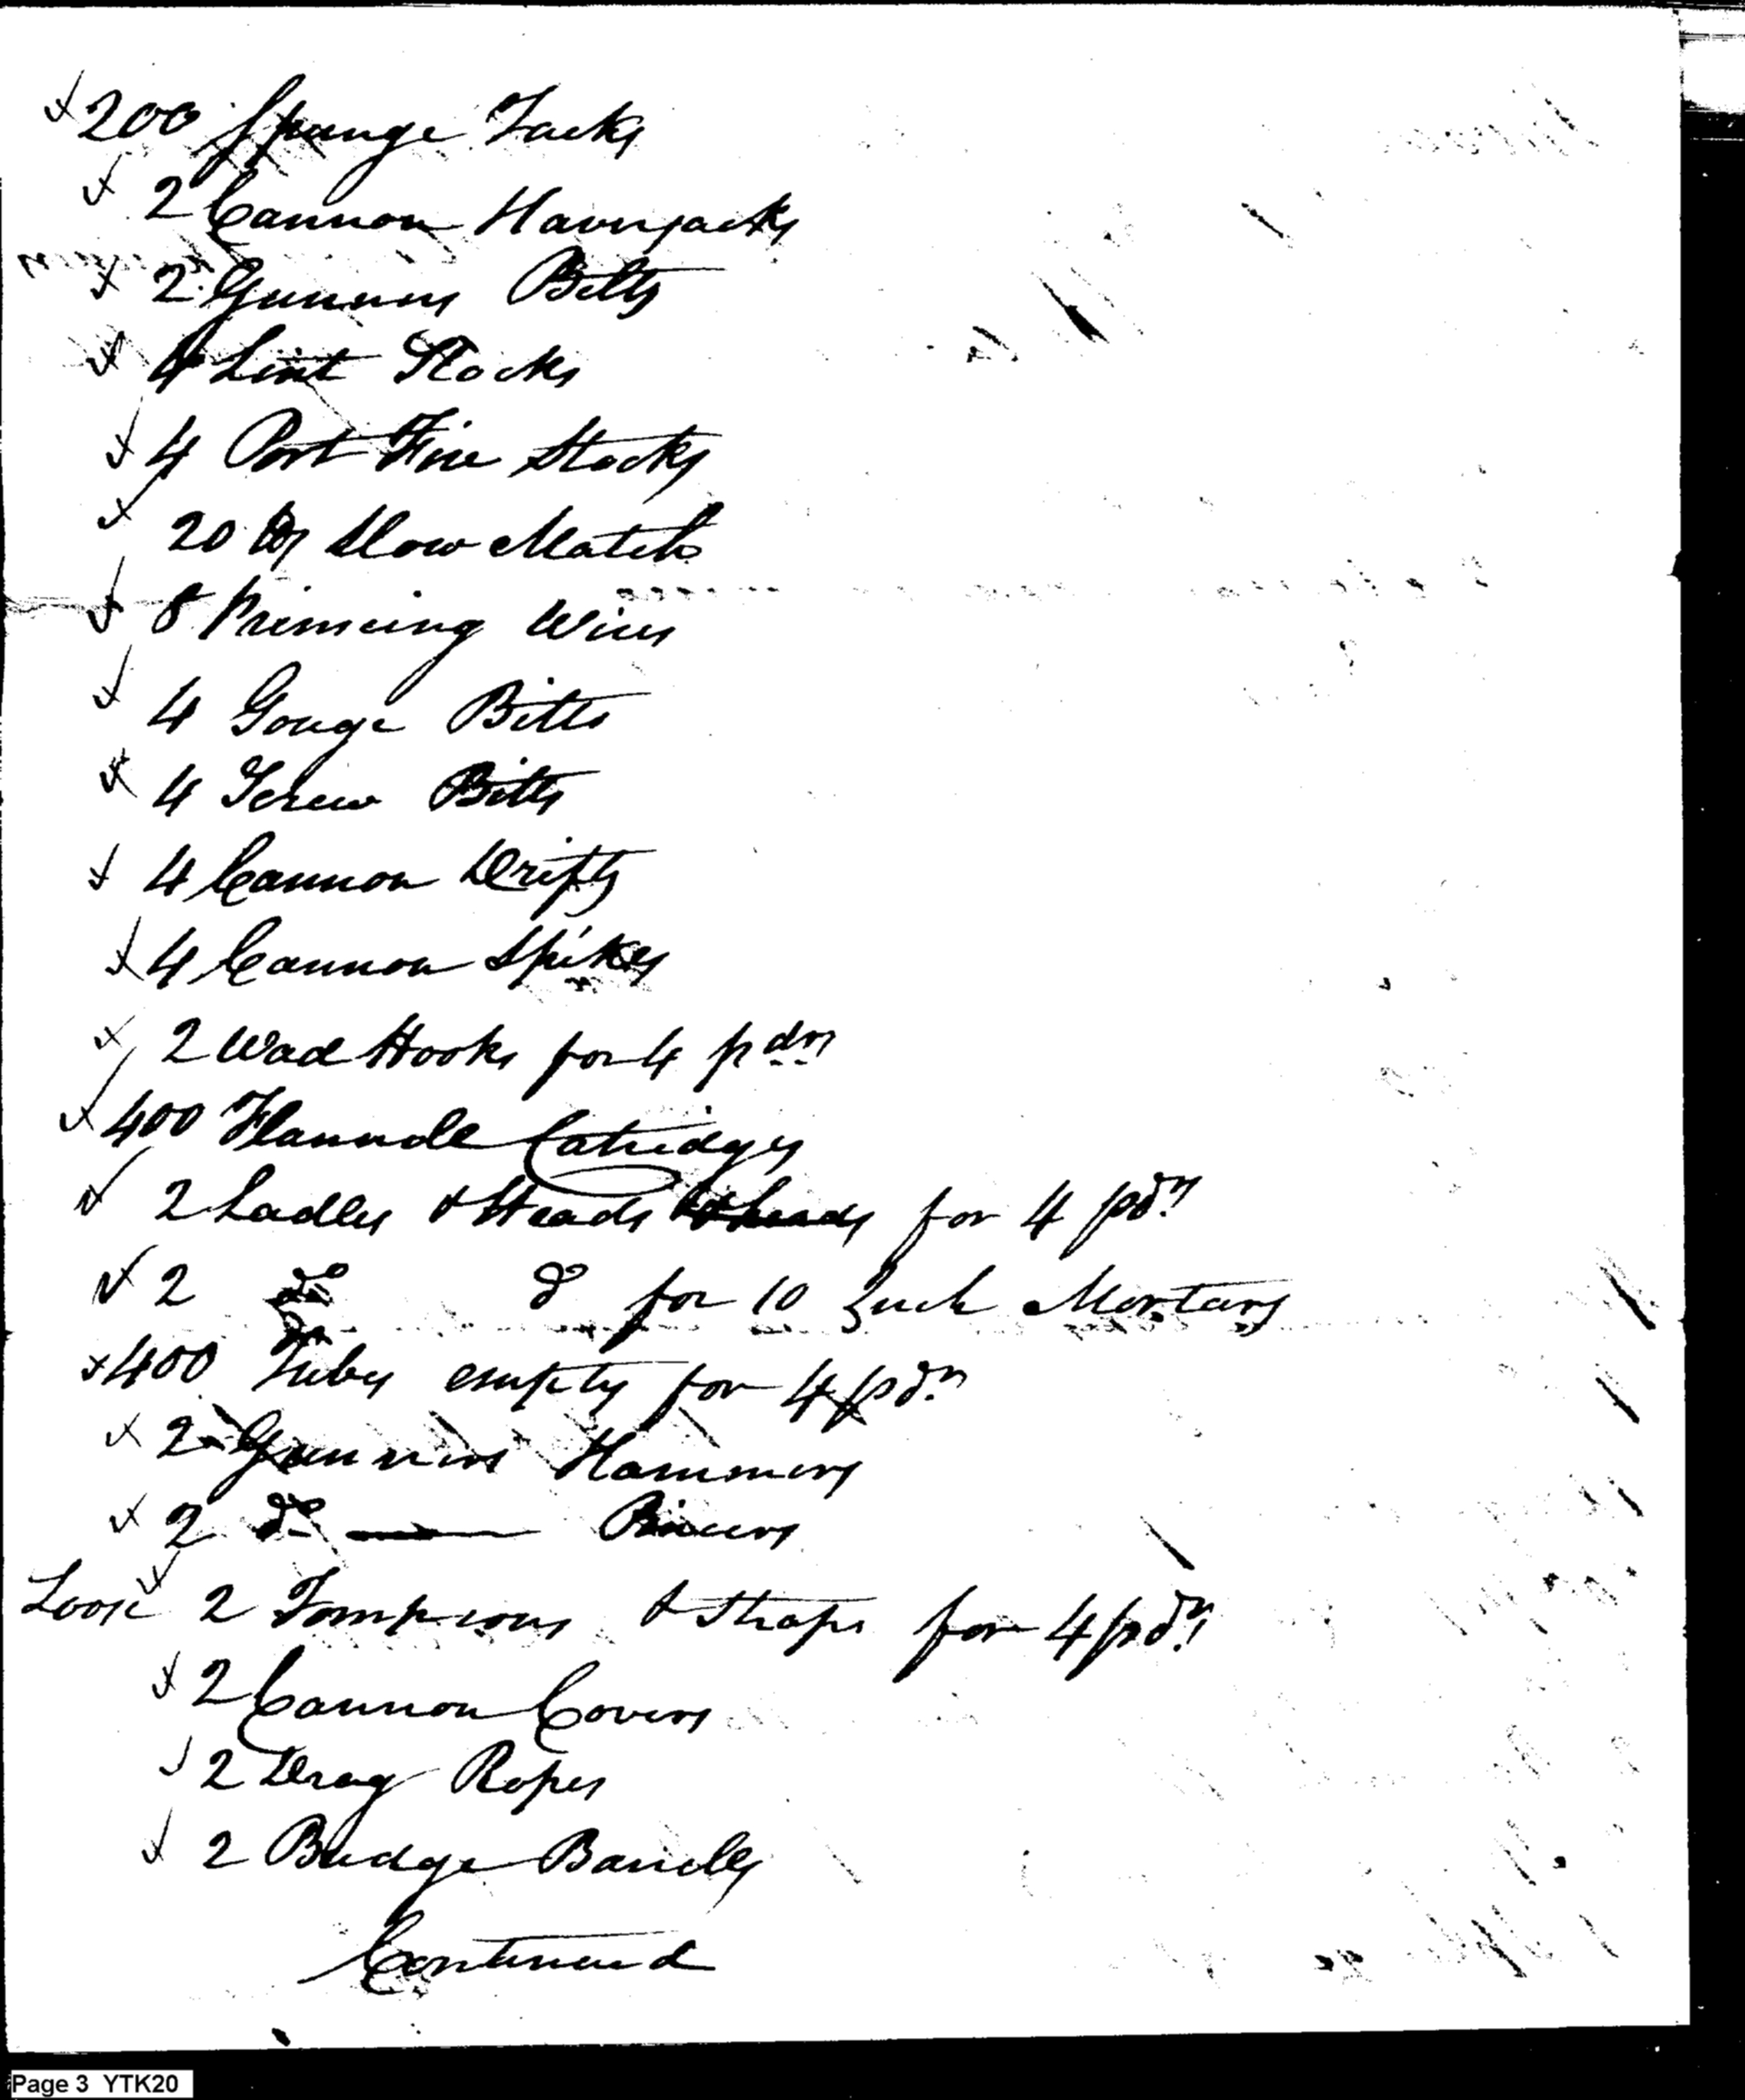 200 Spunge Tacks
2 Cannon Haversacks
2 Gunners Belts
4 Lint Stocks
4 Port Fire Stocks
20 lbs Slow Match
8 Priming Wires
4 Gouge Bitts
4 Screw Bitts
4 Cannon Drifts
4 Cannon Spikes
2 Wad Hooks for 4 pdrs
400 Flannole Catridges
2 Ladles & Heads for 4 pdr
2 do do for 10 Inch Mortars
400 Tubes empty for 4 pdr
2 Gunners Hammers
2 do Pincers
Loose 2 Tompions & Straps for 4 pdrs
2 Cannon Covers
2 Drag Ropes
2 Budge Barrells
Continued
Page 3 YTK20